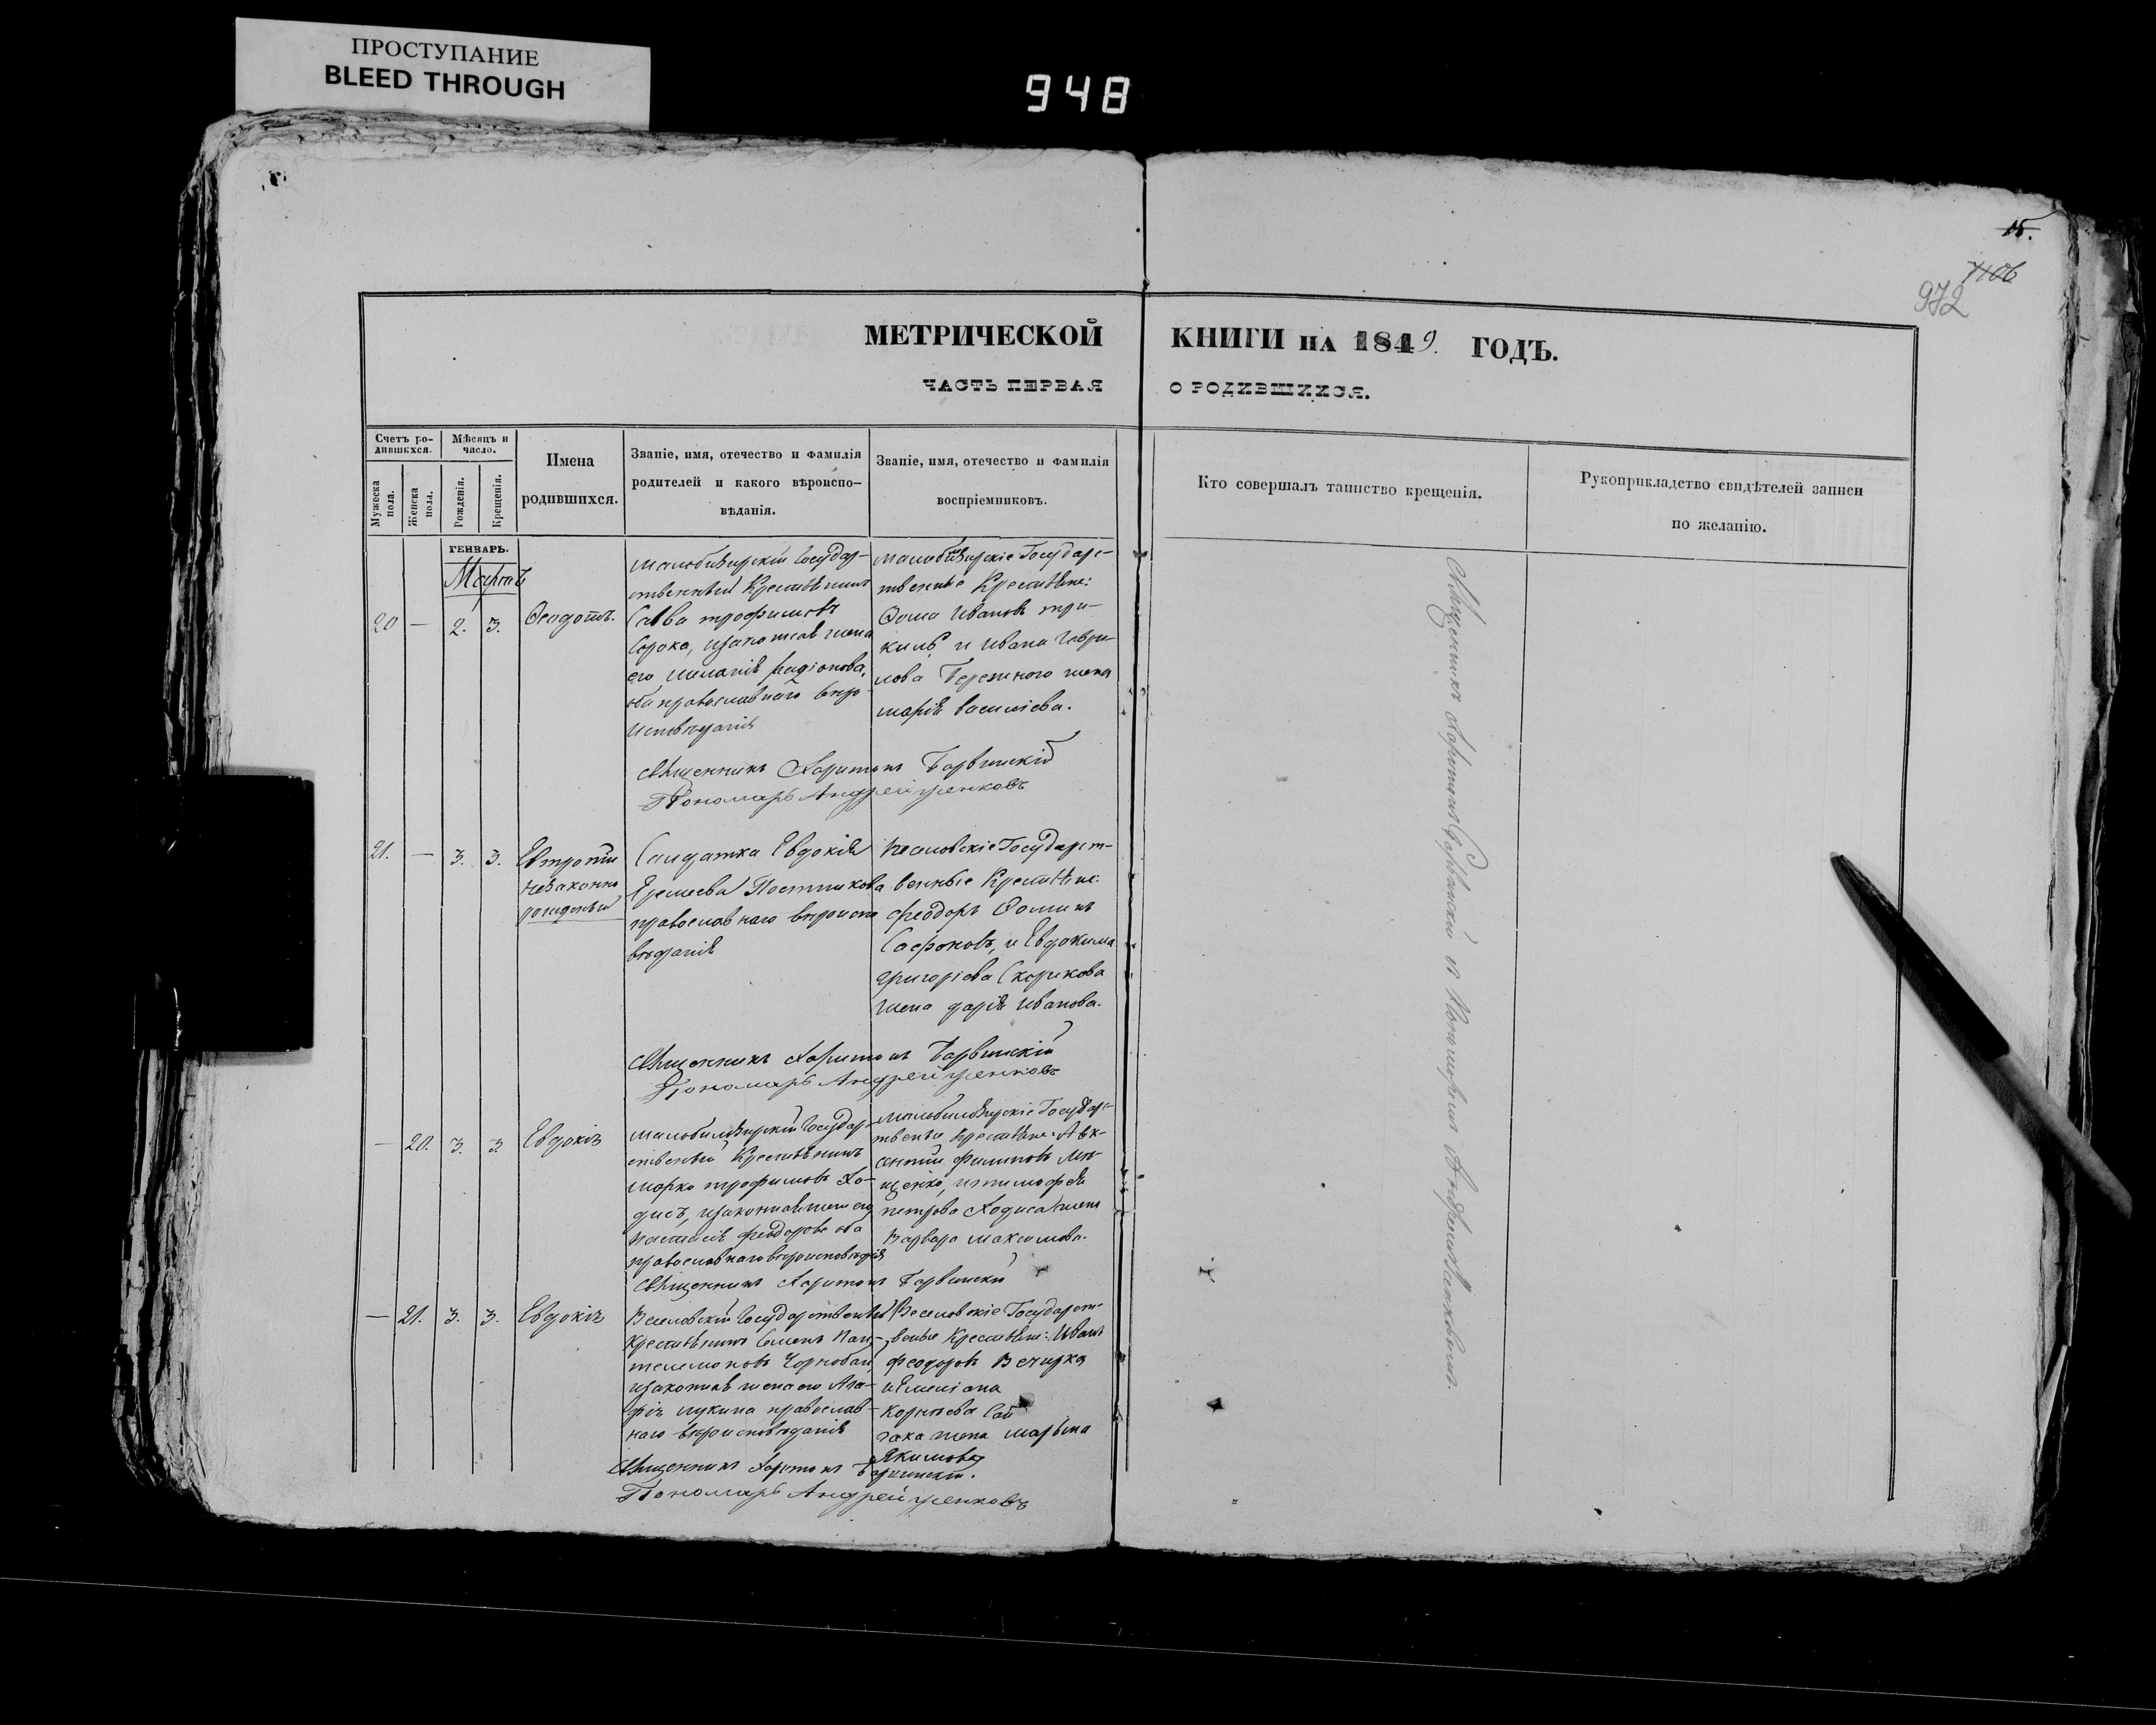 ПРОСТУПАНИЕ
BLEED THROUGH
948
15.
1106
972
МЕТРИЧЕСКОЙ КНИГИ НА 1849. ГОДЪ.
ЧАСТЬ ПЕРВАЯ О РОДИВШИХСЯ.
Счетъ ро-
дившихся.
Мужеска пола.
Женска пола.
Мѣсяцъ и
число.
Рожденія.
Крещенія.
Имена
родившихся.
Званіе, имя, отечество и фамилія
родителей и какого вѣроиспо-
вѣданія.
Званіе, имя, отечество и фамилія
воспріемниковъ.
Кто совершалъ таинство крещенія.
Рукоприкладство свидѣтелей записи
по желанію.
ГЕНВАРЬ.
Мартъ
20 — 2. 3. Ѳеодотъ.
Государ-
ственный Крестьянинъ
Савва трофимовъ
Сорока, и законная жена
его Меланія Радіонова,
оба православнаго вѣро-
исповѣданія
Государс-
твенные Крестьяне:
Ѳома Ивановъ
и Ивана Гаври-
лова Бережного жена
марія василіева.
Священникъ Харитонъ Барвинскій
Пономарь Андрей
21. — 3. 3. Евтропій
незаконно
рожденный
Салдатка Евдокія
Постникова
православнаго вѣроиспо
вѣданія
Государст-
венные Крестьяне:
феодоръ Ѳоминъ
Сафоновъ, и Евдокима
григоріева Скорикова
жена дарія Иванова.
Священникъ Харитонъ Барвинскій
Пономарь Андрей
— 20. 3. 3 Евдокія
Государ-
ственный Крестьянинъ
марко трофимовъ Хо-
дисъ, и законная жена его
феодорова оба
православнаго вѣроисповѣданія
Государс-
Крестьяне: Авк-
сентій Филиповъ
петрова Ходиса жена
Варвара максимова.
Священникъ Харитонъ Барвинскій
— 21. 3. 3. Евдокія
Веселовскій Государственный
Крестьянинъ Семенъ Пан-
телемоновъ Чорнобай,
и законная жена его Ага-
фія лукина православ-
наго вѣроисповѣданія
Веселовскіе Государст-
венные Крестьяне: Иванъ
феодоровъ Вечирка
и Емеліана
Корнѣева
жена марьина
Якимова
Священникъ Харитонъ Барвинскій.
Пономарь Андрей
Священникъ Харитонъ Барвинскій съ Пономаремъ